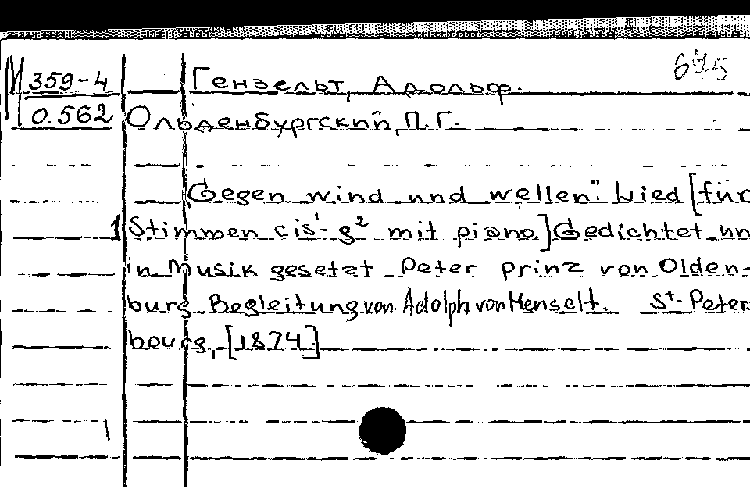 М 359-4 Гензельт, Адольф. 695
0.562 Ольденбургский, П.Г.
"Gegen wind und wellen". Lied [für
1 Stimmen cis¹-g² mit piano] Gedichtet un
in Musik gesetzt Peter prinz von Olden-
burg Begleitung von Adolph von Henselt. St-Peter
bourg, [1874]